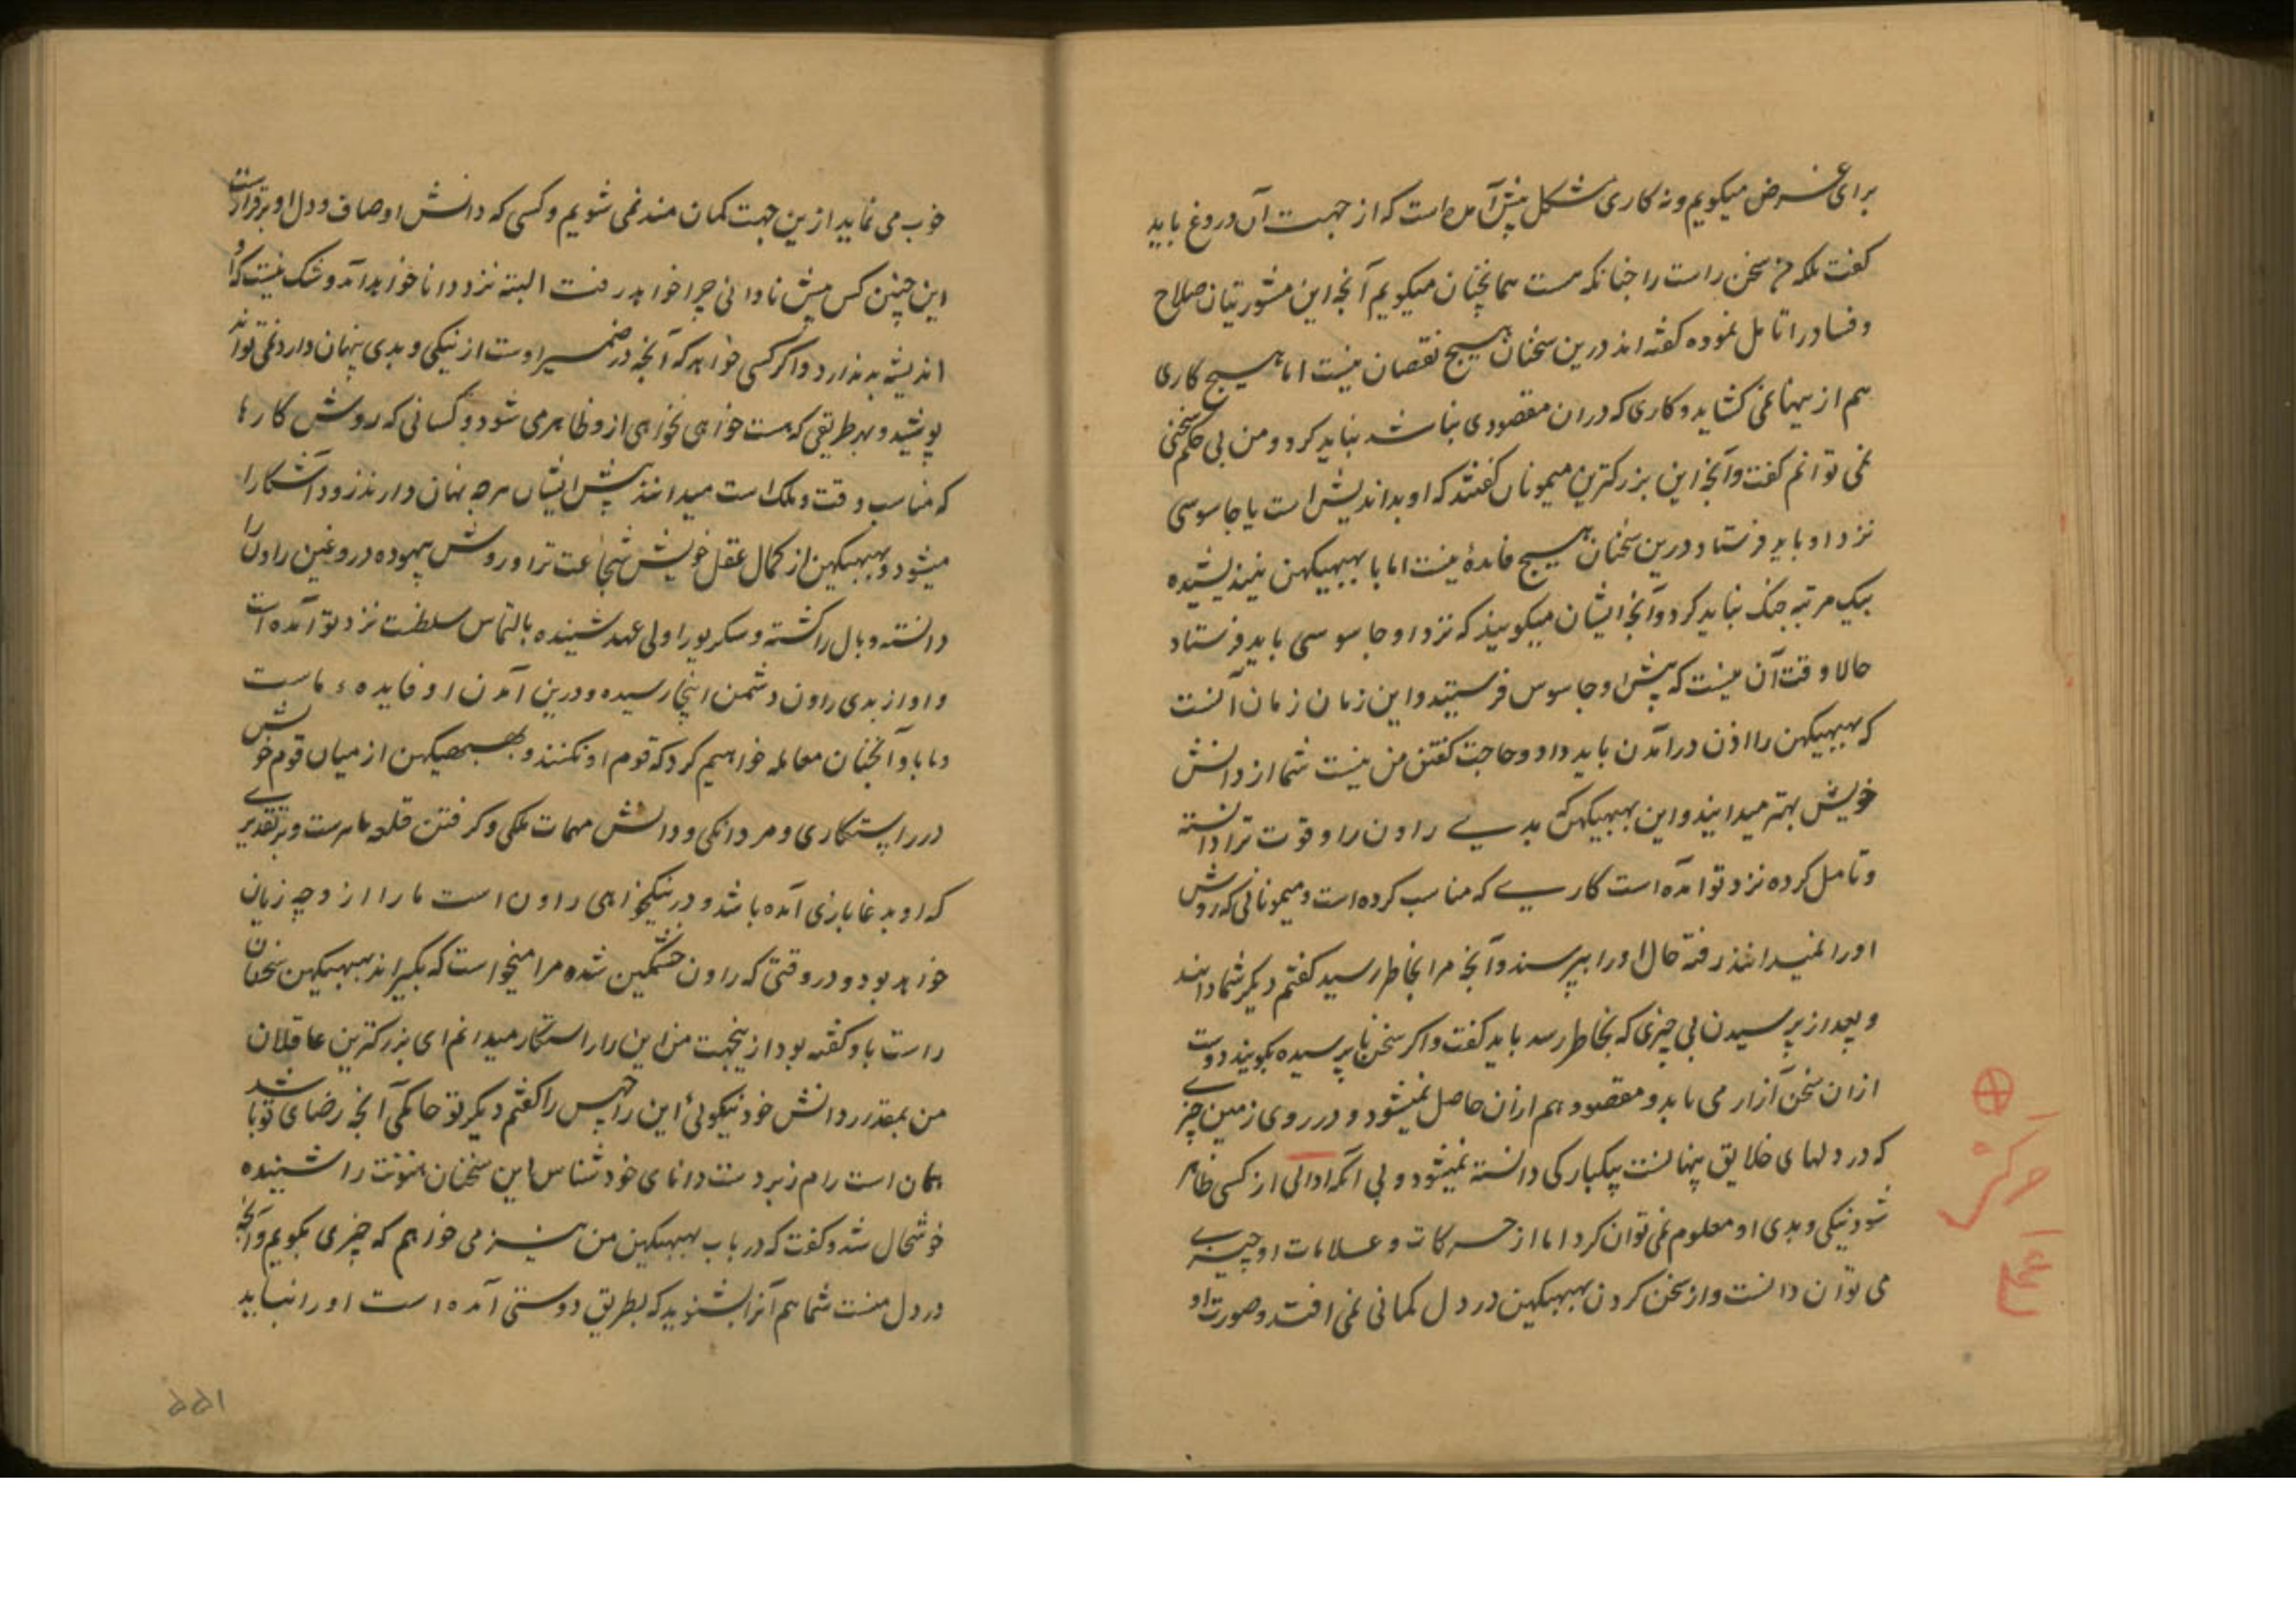 برای غرض میکویم و نه کاری مشکل پیش آمده است که از جهت آن دروغ باید
کفت بلکه سخن راست را چنانکه هست همانچنان میکویم آنچه این مشورتیان صلاح
و فساد را تامل نموده کفته اند درین سخنان هیچ نقصان نیست اما هیچ کاری
هم از ینها نمی کشاید و کاری که دران مقصودی نباشد نباید کرد و من بی حکم سخنی
نمی توانم کفت و آنچه این بزرکترین میمونان کفتند که او بداندیش است یا جاسوسی
نزد او باید فرستاد درین سخنان هیچ فائدهٔ نیست اما با بهبیکهن نیندیشیده
بیک مرتبه جنک نباید کرد و آنچه ایشان میکویند که نزد او جاسوسی باید فرستاد
حالا وقت آن نیست که پیش او جاسوس فرستید و این زمان زمان آنست
که بهبیکهن را اذن درآمدن باید داد و حاجت کفتن من نیست شما از دانش
خویش بهتر میدانید و این بهبیکهن بدیے راون را و قوت ترا دانسته
و تامل کرده نزد تو آمده است کاریے که مناسب کرده است و میمونانی که روش
او را نمیدانند رفته حال او را بپرسند و آنچه مرا بخاطر رسید کفتم دیکر شما دانید
و بعد از پرسیدن بی چیزی که بخاطر رسد باید کفت و اکر سخن ناپرسیده بکویند دوست
ازان سخن آزار می یابد و مقصود هم ازان حاصل نمیشود و در روی زمین چیزے
که در دلهای خلایق پنهانست بیکبارکی دانسته نمیشود و بی آنکه ادائی از کسی ظاهر
شود نیکی و بدی او معلوم نمی توان کرد اما از حرکات و علامات او چیزے
می توان دانست و از سخن کردن بهبیکهن در دل کمانی نمی افتد و صورت او
خوب می نماید ازین جهت کمان مند نمی شویم و کسی که دانش او صاف و دل او برقرارست
این چنین کس پیش نادانی چرا خواهد رفت البته نزد دانا خواهد آمد و شک نیست که او
اندیشه بد ندارد و اکر کسی خواهد که آنچه در ضمیر اوست از نیکی و بدی پنهان دارد نمی تواند
پوشید و بهر طریقی که هست خواهی نخواهی از و ظاهر می شود و کسانی که روش کارها
که مناسب وقت و ملک است میدانند پیش ایشان هرچه پنهان دارند زود آشکارا
میشود و بهبیکهن از کمال عقل خویش شجاعت ترا و روش بیهوده دروغین راون را
دانسته و بال را کشته و سکریو را ولی عهد شنیده بالتماس سلطنت نزد تو آمده است
و او از بدی راون دشمن اینجا رسیده و درین آمدن او فایدهء ماست
و ما با او آنچنان معامله خواهیم کرد که قوم او نکنند و بهبهیکهن از میان قوم خویش
در راستکاری و مردانکی و دانش مهمات ملکی و کرفتن قلعه ماهرست و بر تقدیرے
که او بدغابازی آمده باشد و در نیکخواهی راون است ما را از و چه زیان
خواهد بود و در وقتی که راون خشمکین شده مرا میخواست که بکیراند بهبیکهن سخنان
راست باو کفته بود ازینجهت من این را راستکار میدانم ای بزرکترین عاقلان
من بمقدر دانش خود نیکوئی این راجهس را کفتم دیکر تو حاکمی آنچه رضای تو باشد
همان است رام زبردست دانای خود شناس این سخنان هنونت را شنیده
خوشحال شد و کفت که در باب بهبیکهن من نیز می خواهم که چیزی بکویم و آنچه
در دل منست شما هم آنرا بشنوید که بطریق دوستی آمده است او را نباید
۱۵۵